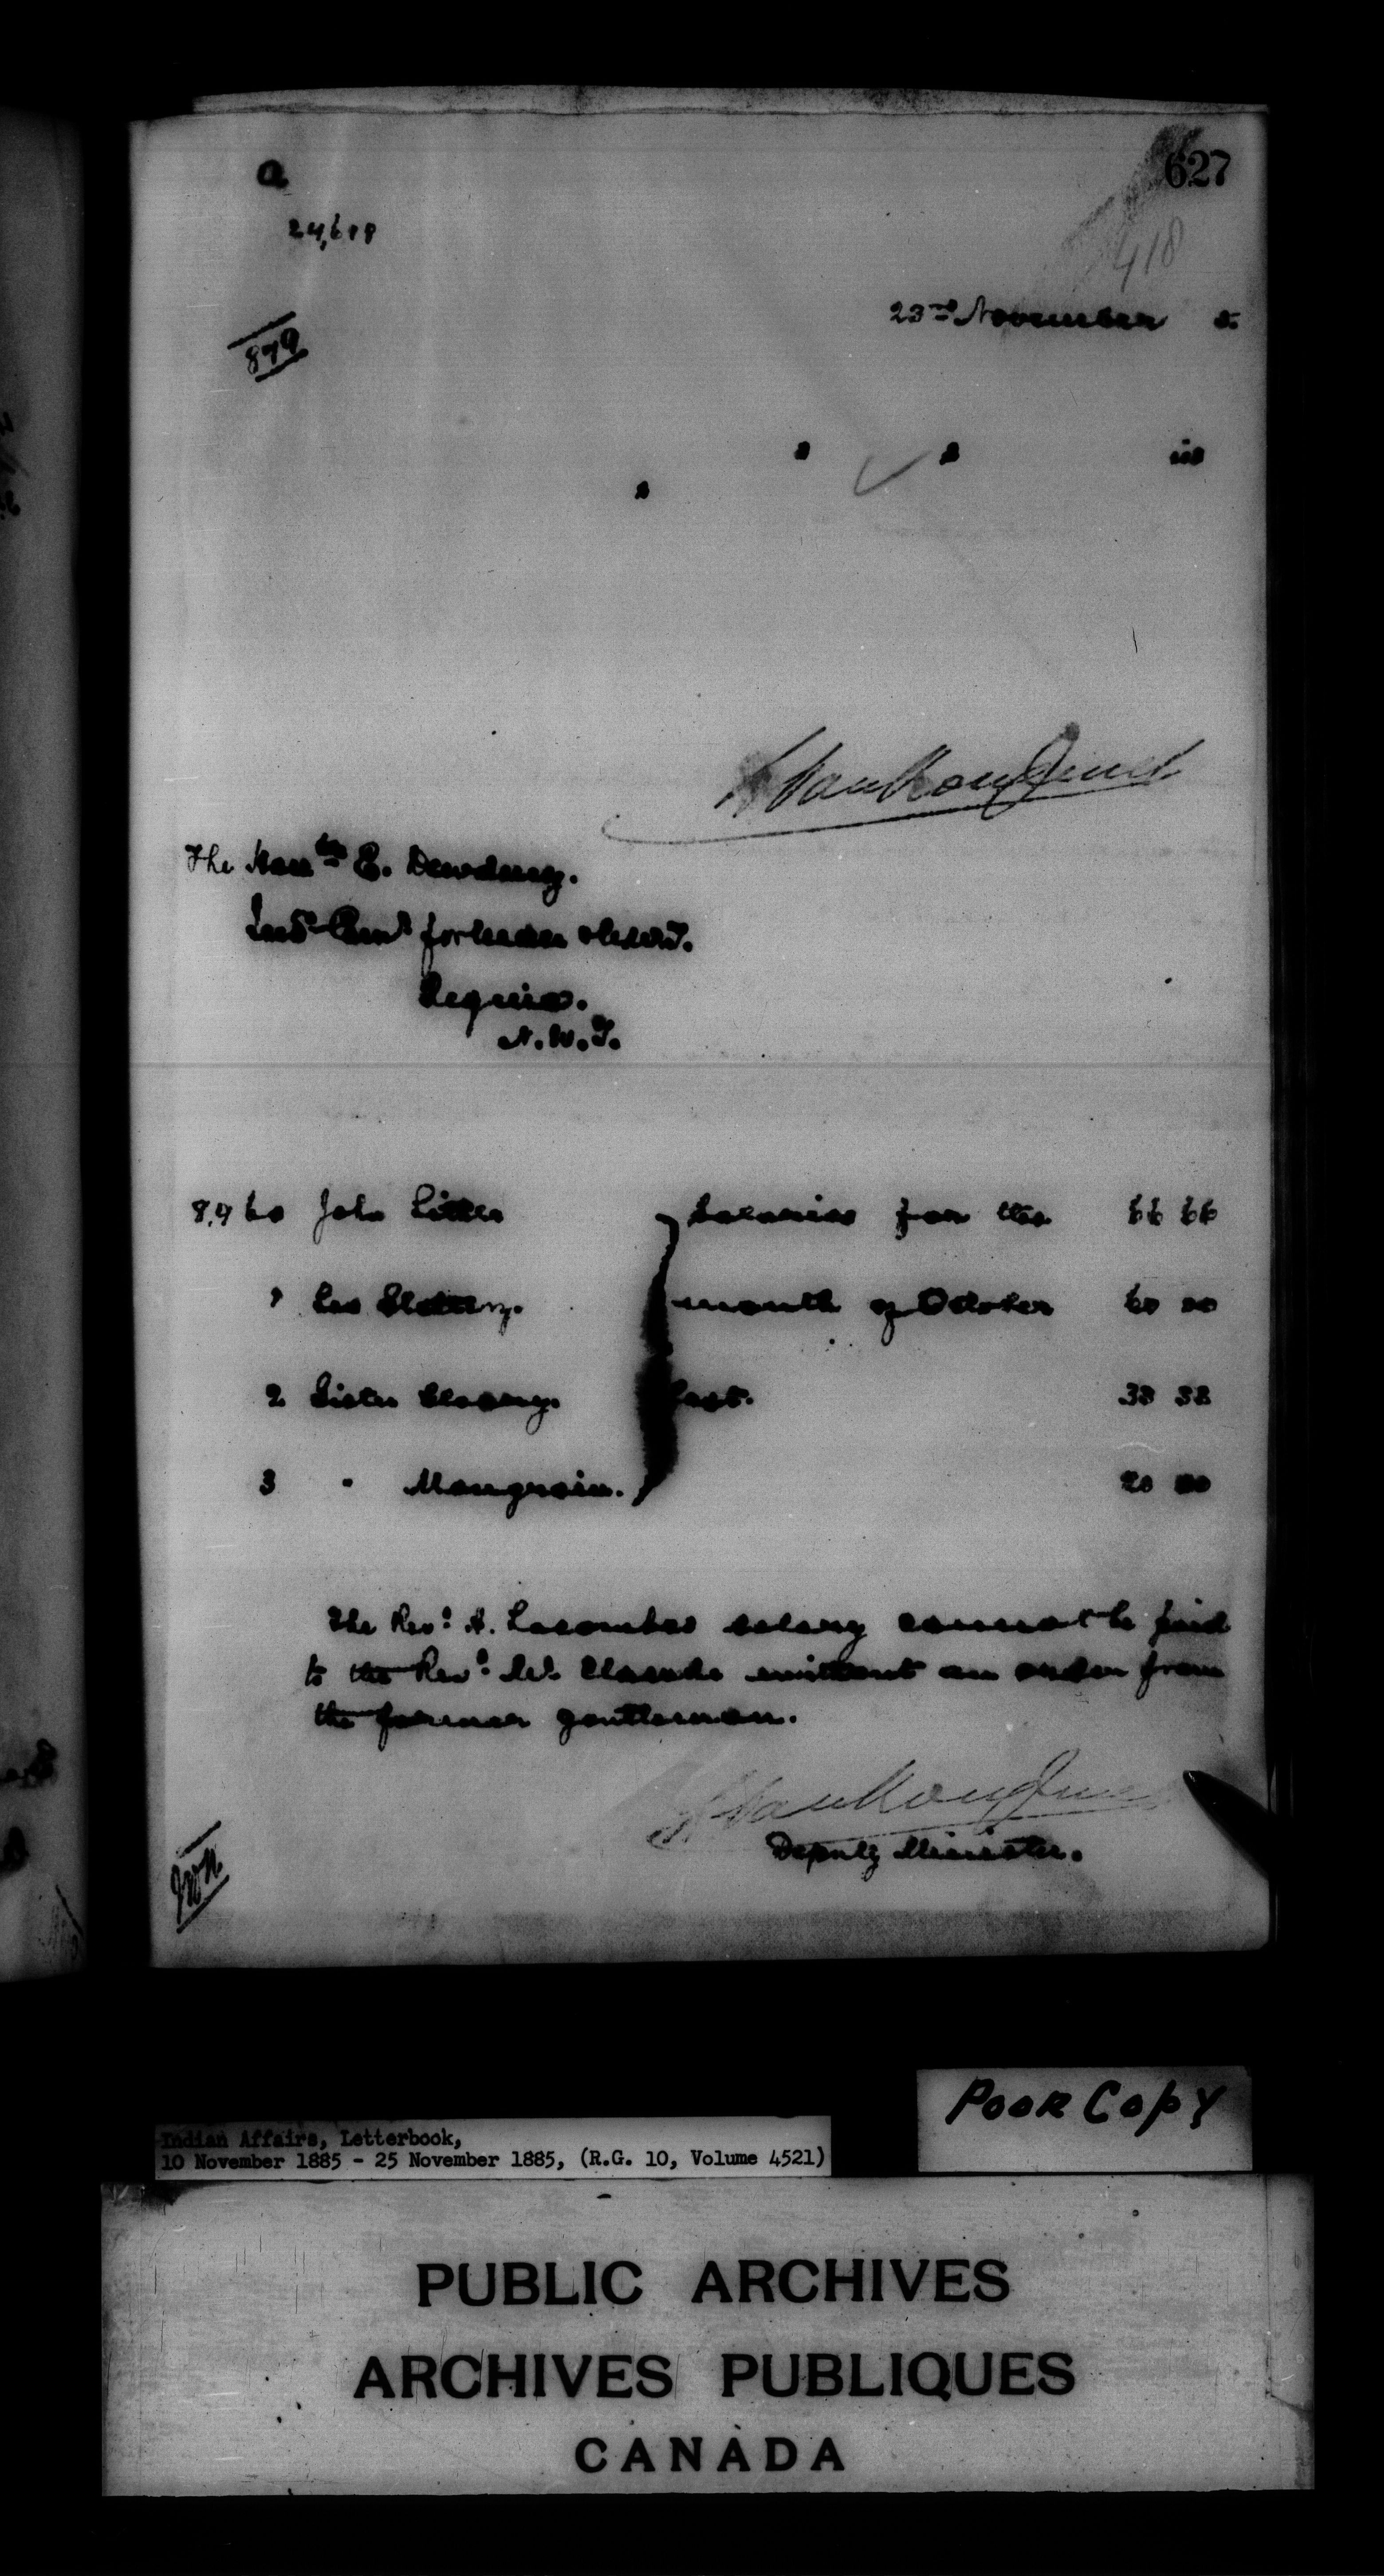 a
627
24,6
418
23rd November 5.
879
s s iis
s
L VanKoughnet
The Honble E. Dewdney.
Regina.
N.W.T.
8,960 John Salaries for the 66 66
1 Leo month of October 60 00
2 Sister last. 33 33
3 " Mongrain. 20 00
The Revd. A. Lacombes salary cannot be paid
to the Revd. Mr. Claude without an order from
the former gentleman.
L VanKoughnet
Deputy Minister.
Poor Copy
Indian Affairs, Letterbook,
10 November 1885 - 25 November 1885, (R.G. 10, Volume 4521)
PUBLIC ARCHIVES
ARCHIVES PUBLIQUES
CANADA